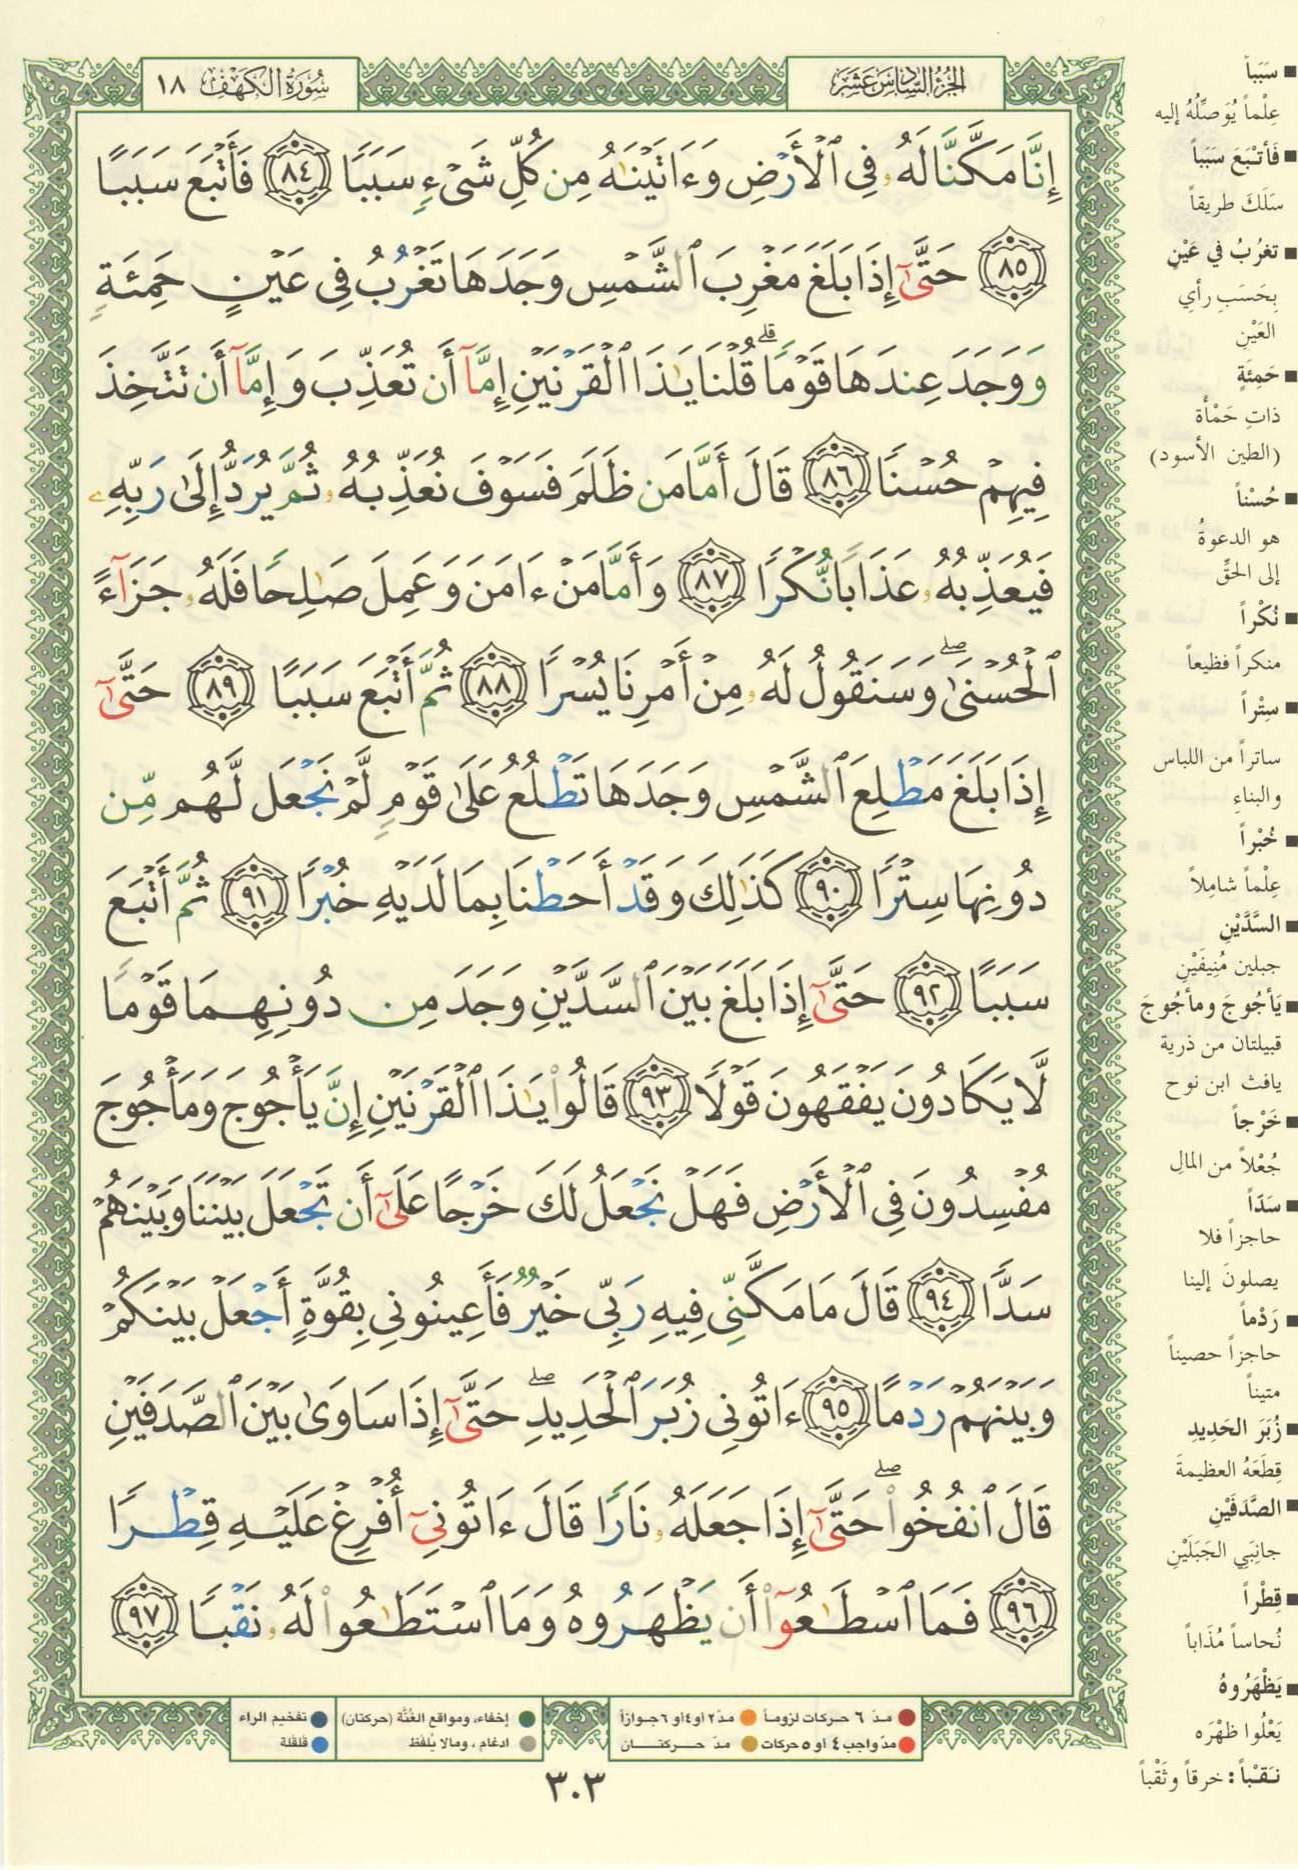 سُورَةُ الكَهْفِ ١٨
الجُزْءُ السَّادِسَ عَشَرَ
إِنَّا مَكَّنَّا لَهُۥ فِى ٱلْأَرْضِ وَءَاتَيْنَٰهُ مِن كُلِّ شَىْءٍ سَبَبًا ٨٤ فَأَتْبَعَ سَبَبًا
٨٥ حَتَّىٰٓ إِذَا بَلَغَ مَغْرِبَ ٱلشَّمْسِ وَجَدَهَا تَغْرُبُ فِى عَيْنٍ حَمِئَةٍ
وَوَجَدَ عِندَهَا قَوْمًا ۗ قُلْنَا يَٰذَا ٱلْقَرْنَيْنِ إِمَّآ أَن تُعَذِّبَ وَإِمَّآ أَن تَتَّخِذَ
فِيهِمْ حُسْنًا ٨٦ قَالَ أَمَّا مَن ظَلَمَ فَسَوْفَ نُعَذِّبُهُۥ ثُمَّ يُرَدُّ إِلَىٰ رَبِّهِۦ
فَيُعَذِّبُهُۥ عَذَابًا نُّكْرًا ٨٧ وَأَمَّا مَنْ ءَامَنَ وَعَمِلَ صَٰلِحًا فَلَهُۥ جَزَآءً
ٱلْحُسْنَىٰ ۖ وَسَنَقُولُ لَهُۥ مِنْ أَمْرِنَا يُسْرًا ٨٨ ثُمَّ أَتْبَعَ سَبَبًا ٨٩ حَتَّىٰٓ
إِذَا بَلَغَ مَطْلِعَ ٱلشَّمْسِ وَجَدَهَا تَطْلُعُ عَلَىٰ قَوْمٍ لَّمْ نَجْعَل لَّهُم مِّن
دُونِهَا سِتْرًا ٩٠ كَذَٰلِكَ وَقَدْ أَحَطْنَا بِمَا لَدَيْهِ خُبْرًا ٩١ ثُمَّ أَتْبَعَ
سَبَبًا ٩٢ حَتَّىٰٓ إِذَا بَلَغَ بَيْنَ ٱلسَّدَّيْنِ وَجَدَ مِن دُونِهِمَا قَوْمًا
لَّا يَكَادُونَ يَفْقَهُونَ قَوْلًا ٩٣ قَالُوا۟ يَٰذَا ٱلْقَرْنَيْنِ إِنَّ يَأْجُوجَ وَمَأْجُوجَ
مُفْسِدُونَ فِى ٱلْأَرْضِ فَهَلْ نَجْعَلُ لَكَ خَرْجًا عَلَىٰٓ أَن تَجْعَلَ بَيْنَنَا وَبَيْنَهُمْ
سَدًّا ٩٤ قَالَ مَا مَكَّنِّى فِيهِ رَبِّى خَيْرٌ فَأَعِينُونِى بِقُوَّةٍ أَجْعَلْ بَيْنَكُمْ
وَبَيْنَهُمْ رَدْمًا ٩٥ ءَاتُونِى زُبَرَ ٱلْحَدِيدِ ۖ حَتَّىٰٓ إِذَا سَاوَىٰ بَيْنَ ٱلصَّدَفَيْنِ
قَالَ ٱنفُخُوا۟ ۖ حَتَّىٰٓ إِذَا جَعَلَهُۥ نَارًا قَالَ ءَاتُونِىٓ أُفْرِغْ عَلَيْهِ قِطْرًا
٩٦ فَمَا ٱسْطَٰعُوٓا۟ أَن يَظْهَرُوهُ وَمَا ٱسْتَطَٰعُوا۟ لَهُۥ نَقْبًا ٩٧
■ سَبَباً
عِلْماً يُوَصِّلُهُ إليه
■ فَأَتْبَعَ سَبَباً
سَلَكَ طريقاً
■ تَغْرُبُ في عَيْنٍ
بِحَسَبِ رأيِ
العَيْنِ
■ حَمِئَةٍ
ذاتِ حَمْأَة
(الطين الأسود)
■ حُسْناً
هو الدعوةُ
إلى الحَقِّ
■ نُكْراً
منكراً فظيعاً
■ سِتْراً
ساتراً من اللباس
والبناءِ
■ خُبْراً
عِلْماً شامِلاً
■ السَّدَّيْنِ
جبلين مُنِيفَيْنِ
■ يَأجُوجَ ومأجُوجَ
قبيلتان من ذرية
يافث ابن نوح
■ خَرْجاً
جُعْلاً من المالِ
■ سَدّاً
حاجزاً فلا
يصلونَ إلينا
■ رَدْماً
حاجزاً حصيناً
متيناً
■ زُبَرَ الحَدِيدِ
قِطَعَهُ العظيمةَ
■ الصَّدَفَيْنِ
جانِبَي الجَبَلَيْنِ
■ قِطْراً
نُحاساً مُذَاباً
■ يَظْهَرُوهُ
يَعْلُوا ظهْرَه
نَقْباً : خرقاً وثَقْباً
مدّ ٦ حركات لزوماً
مدّ ٢ او ٤ او ٦ جوازاً
إخفاء، ومواقع الغُنَّة (حركتان)
تفخيم الراء
مدّ واجب ٤ او ٥ حركات
مدّ حـركتـان
ادغام ، ومالا يُلفَظ
قلقلة
٣٠٣